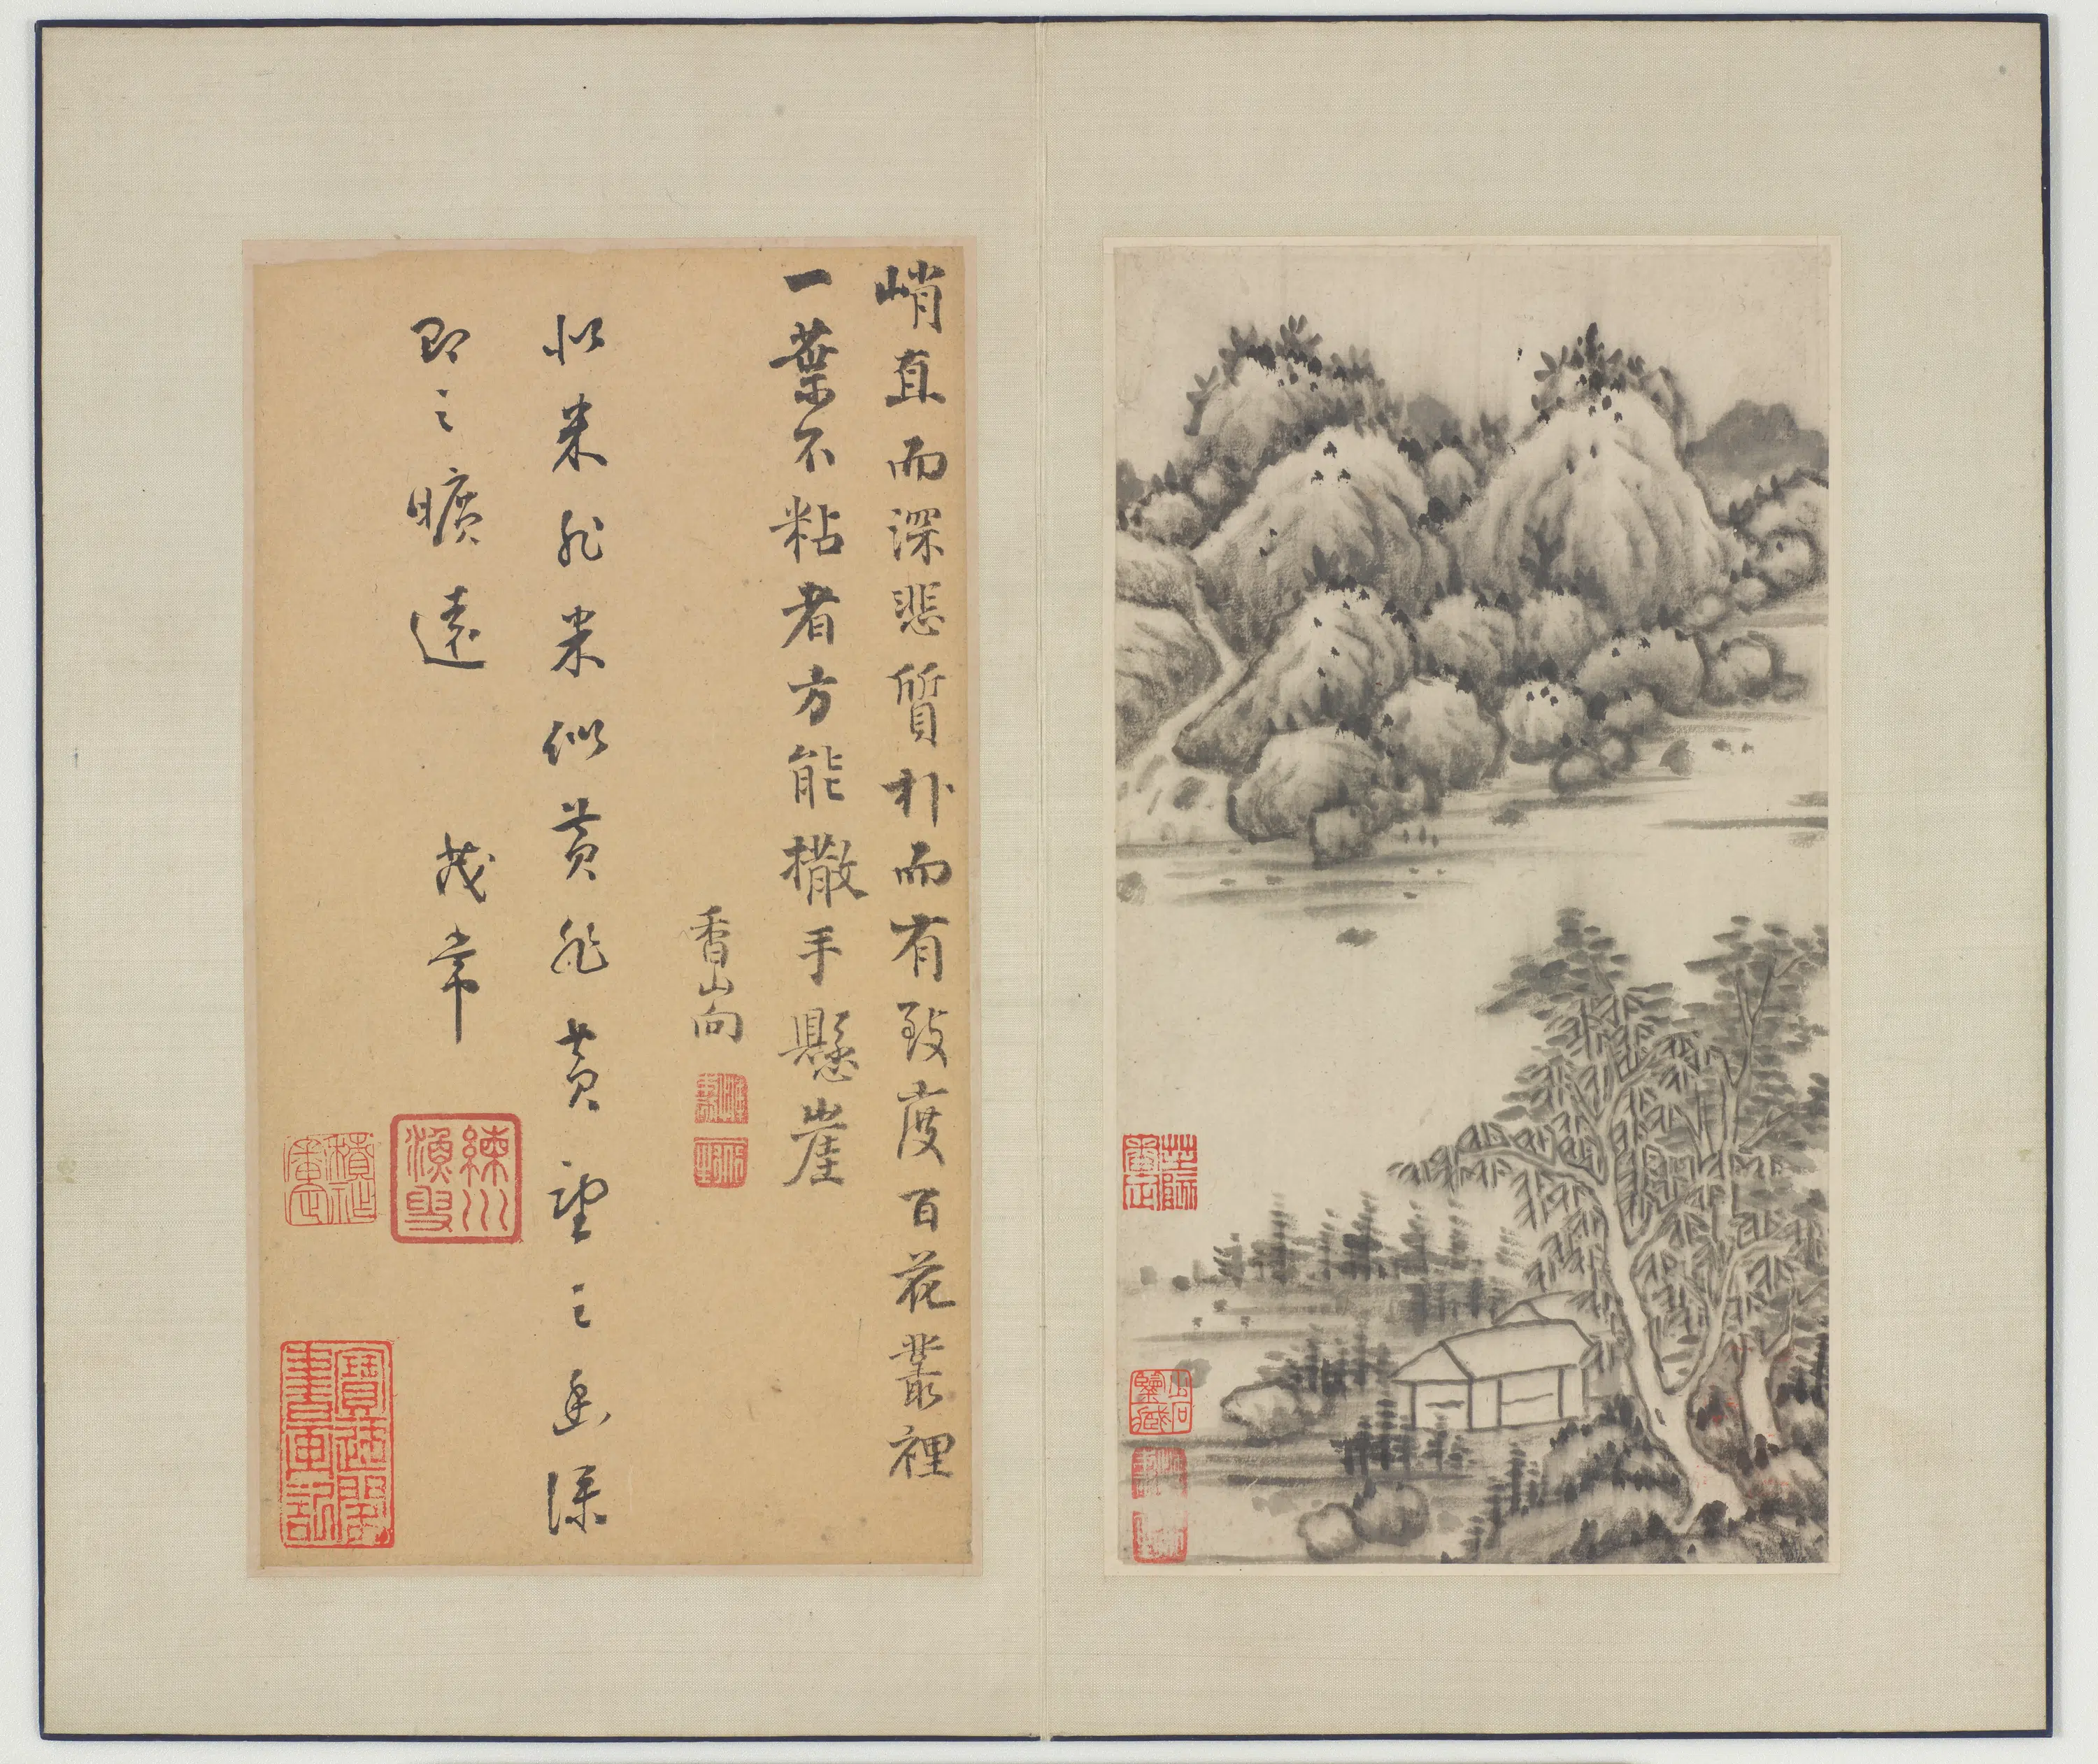 峭直而深悲質朴而有致度百花叢裡
一葉不粘者方能撒手懸崖
香山向
似米非米似黄非黄望之幽深
即之曠遠 茂常
練川漁叟